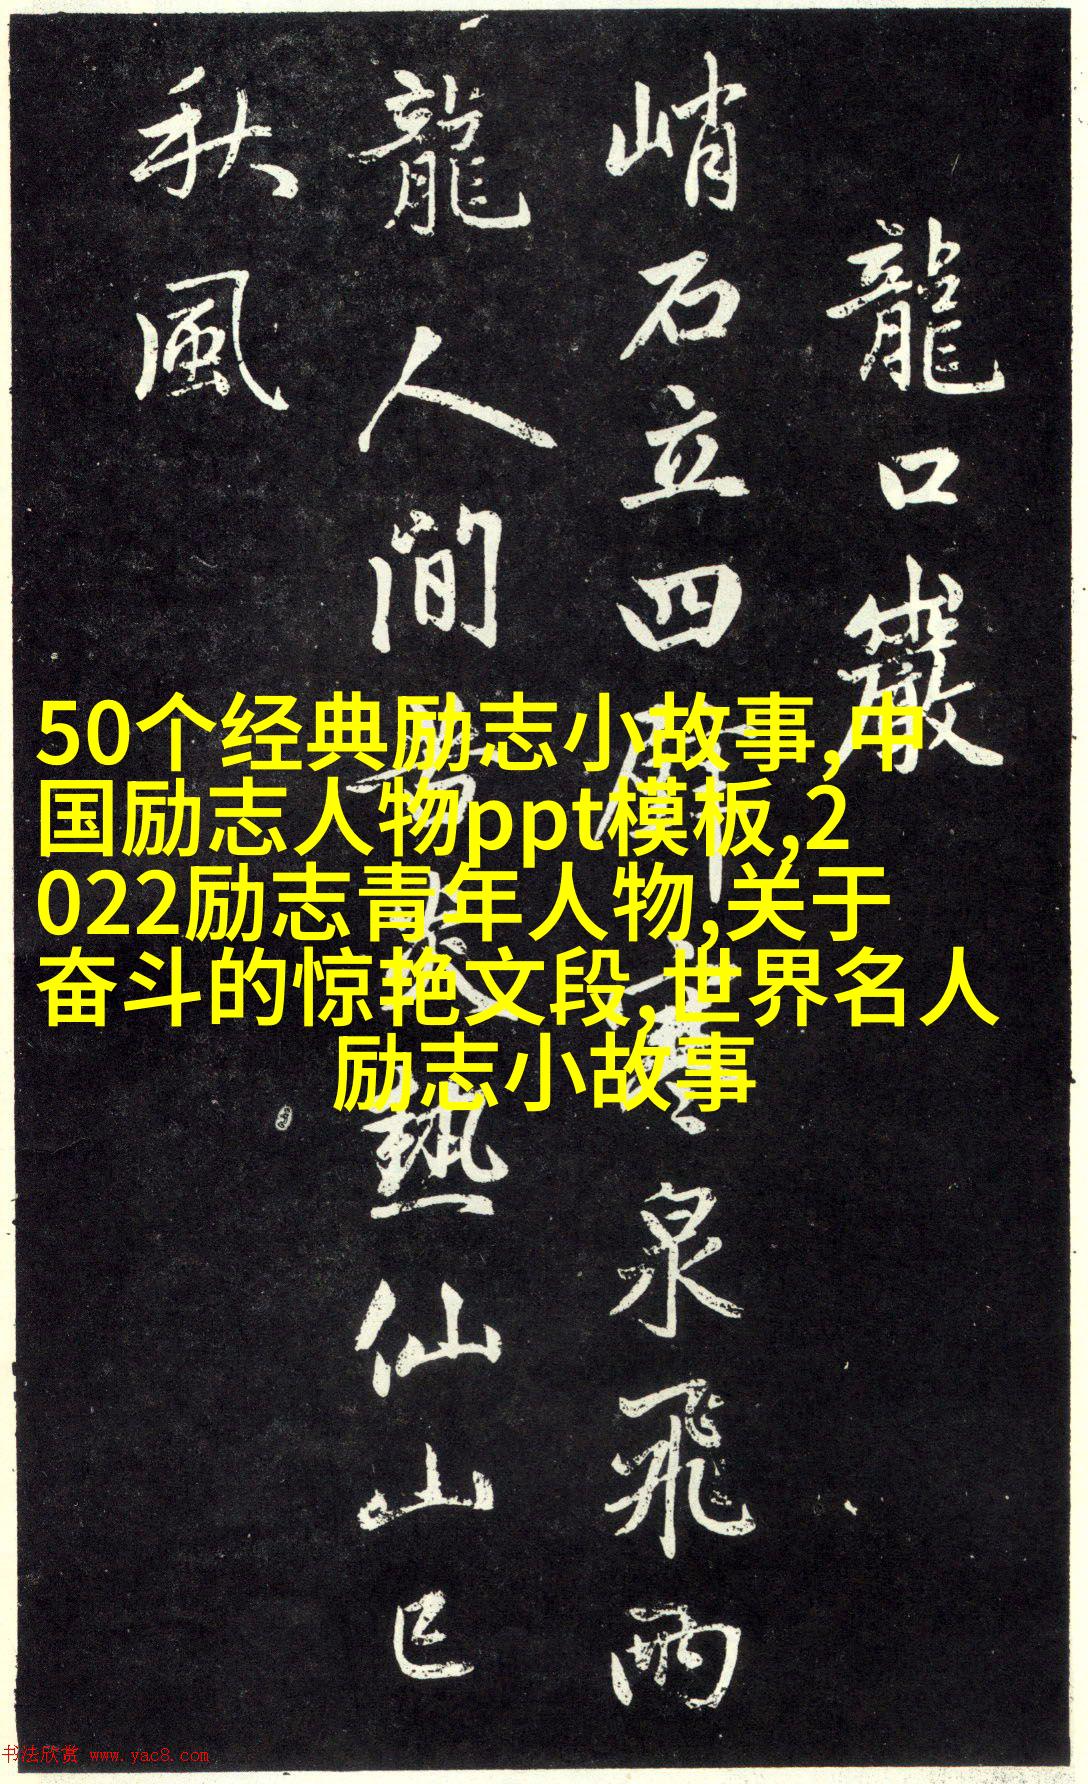 龍口巖
峭石立四壁寒泉飛兩
龍人間苦炎熱仙山已
秋風
50个经典励志小故事,中
国励志人物ppt模板,2
022励志青年人物,关于
奋斗的惊艳文段,世界名人
励志小故事
书法欣赏 www.yac8.com